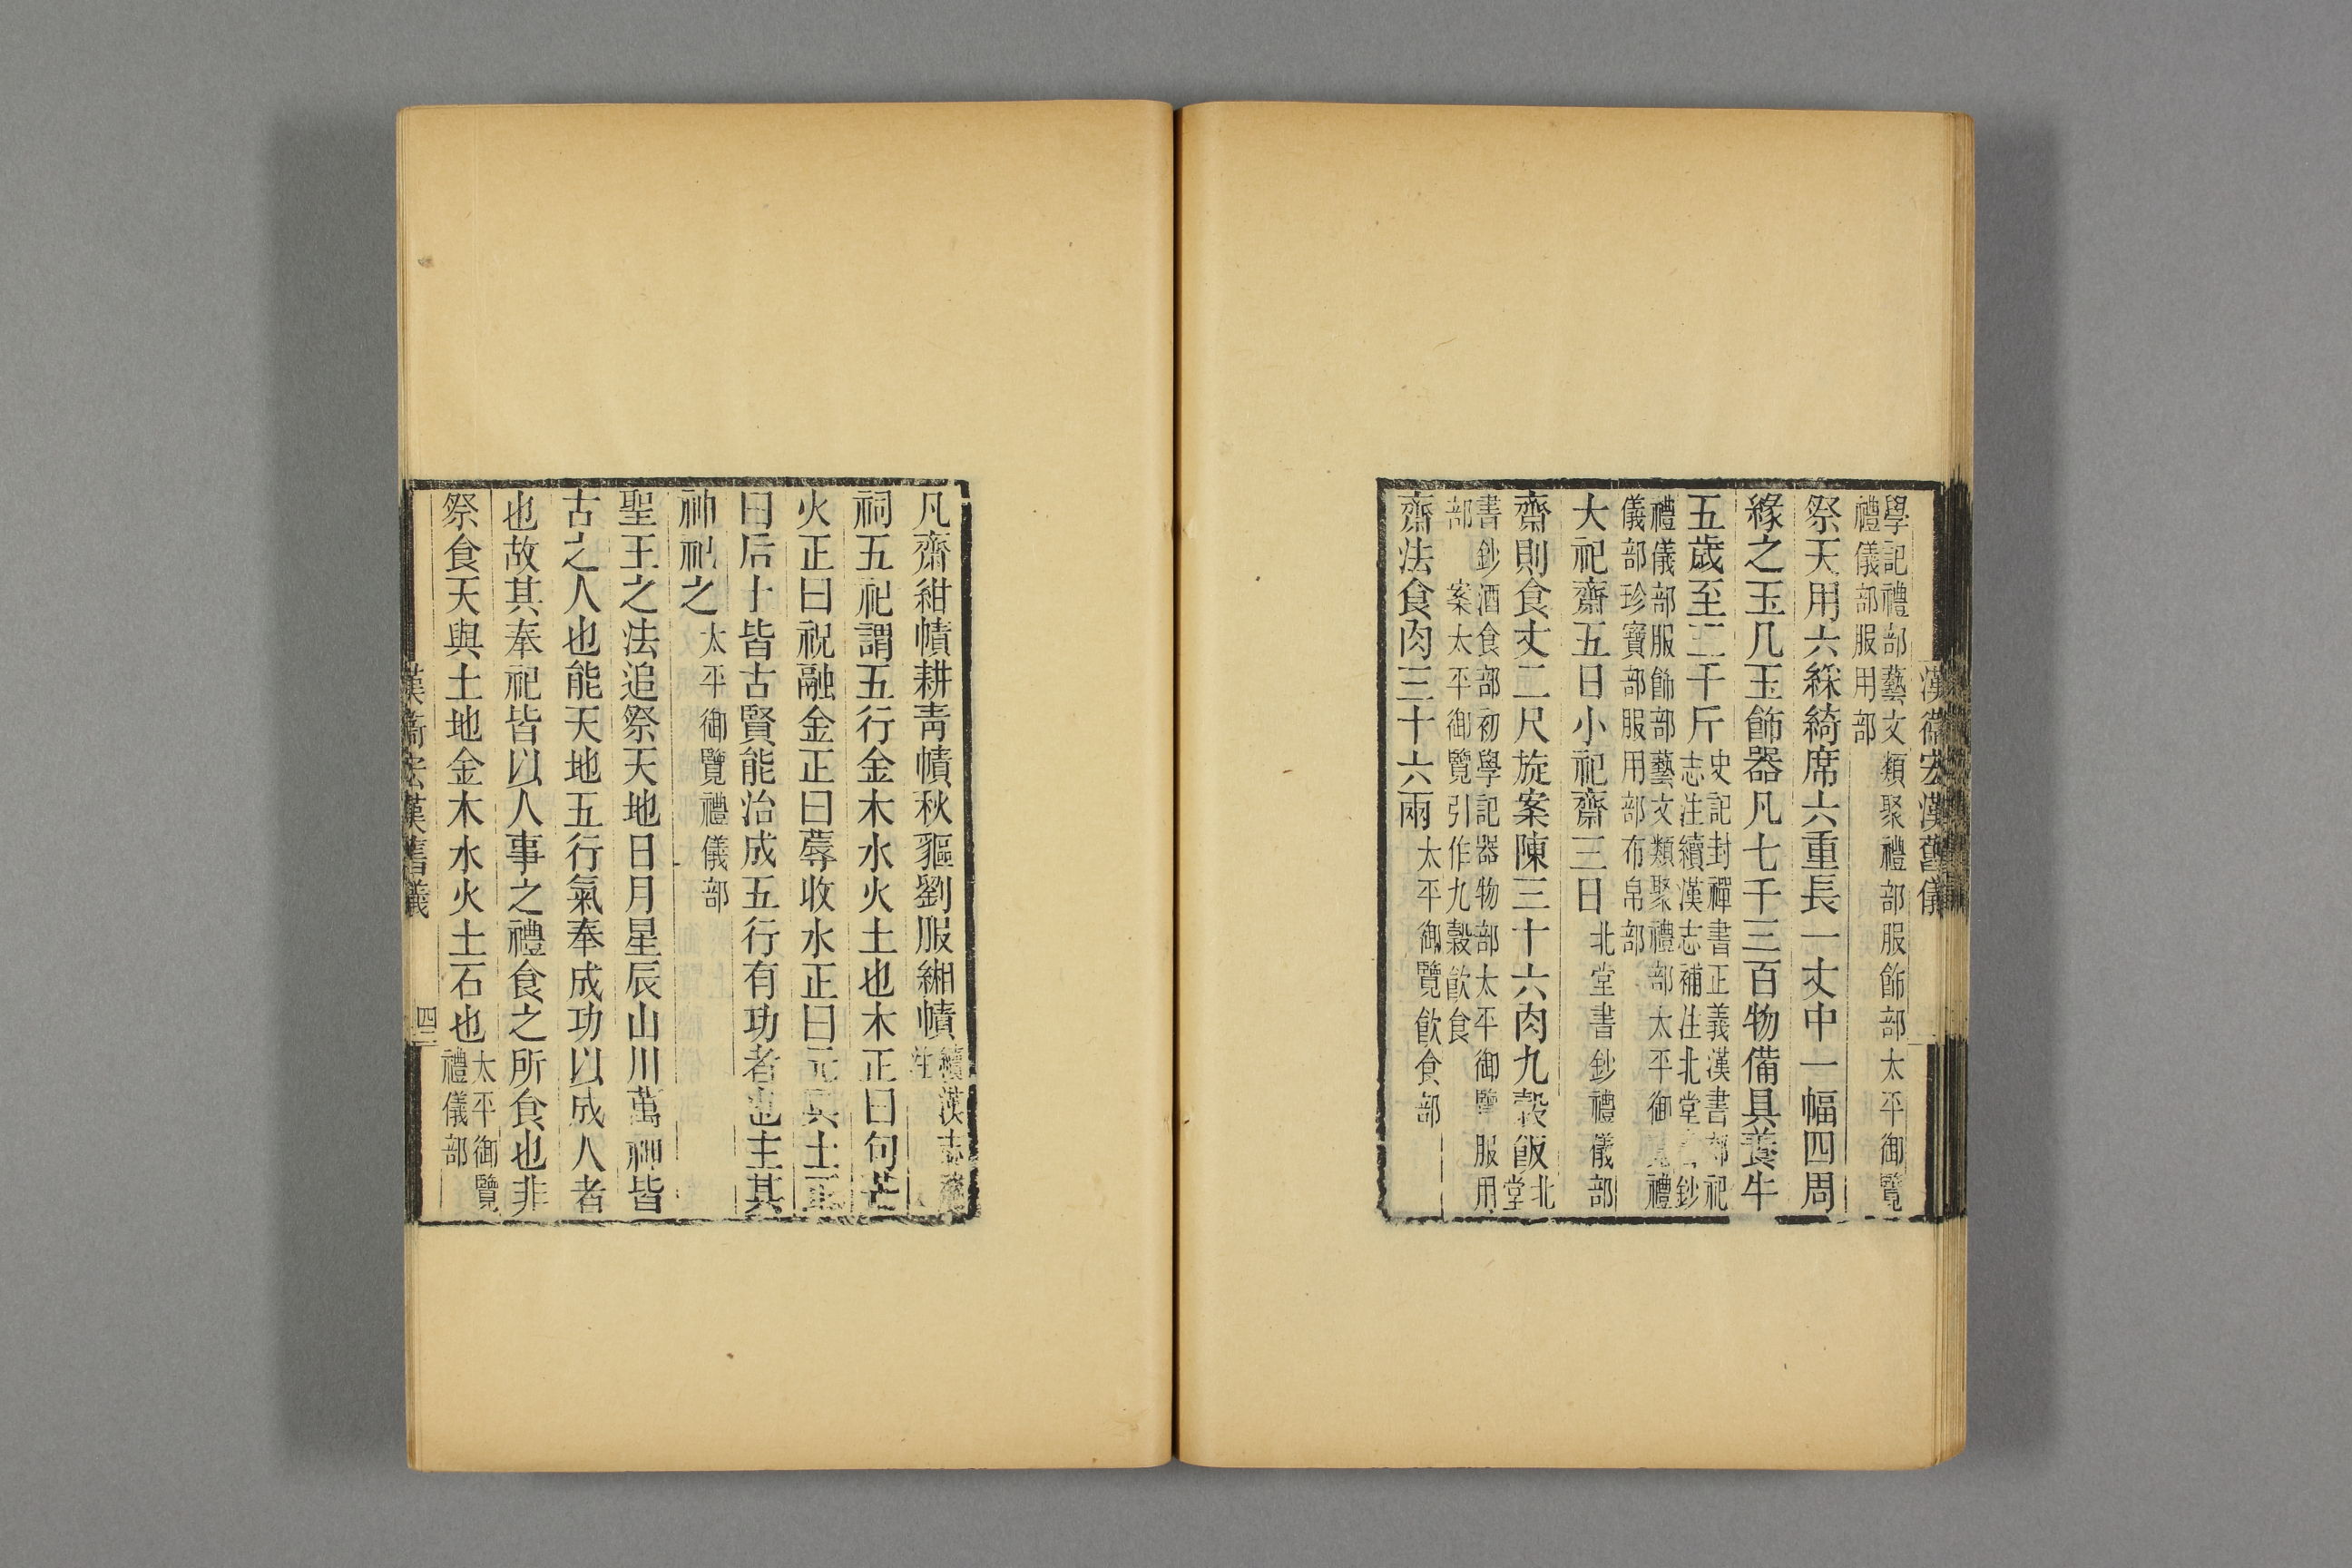 漢衛宏漢舊儀
學記禮部藝文類聚禮部服飾部太平御覽
禮儀部服用部
祭天用六綵綺席六重長一丈中一幅四周
緣之玉几玉飾器凡七千三百物備具養牛
五歲至三千斤史記封禪書正義漢書郊祀
志注續漢志補注北堂書鈔
禮儀部服飾部藝文類聚禮部太平御覽禮
儀部珍寶部服用部布帛部
大祀齋五日小祀齋三日北堂書鈔禮儀部
齋則食丈二尺旋案陳三十六肉九穀飯北
堂
書鈔酒食部初學記器物部太平御覽服用
部 案太平御覽引作九穀飮食
齋法食肉三十六兩太平御覽飮食部
凡齋紺幘耕靑幘秋貙劉服緗幘續漢志
注
祠五祀謂五行金木水火土也木正曰句芒
火正曰祝融金正曰蓐收水正曰元冥土正
曰后土皆古賢能治成五行有功者也主其
神祀之太平御覽禮儀部
聖王之法追祭天地日月星辰山川萬神皆
古之人也能天地五行氣奉成功以成人者
也故其奉祀皆以人事之禮食之所食也非
祭食天與土地金木水火土石也太平御覽
禮儀部
漢衛宏漢舊儀 四二